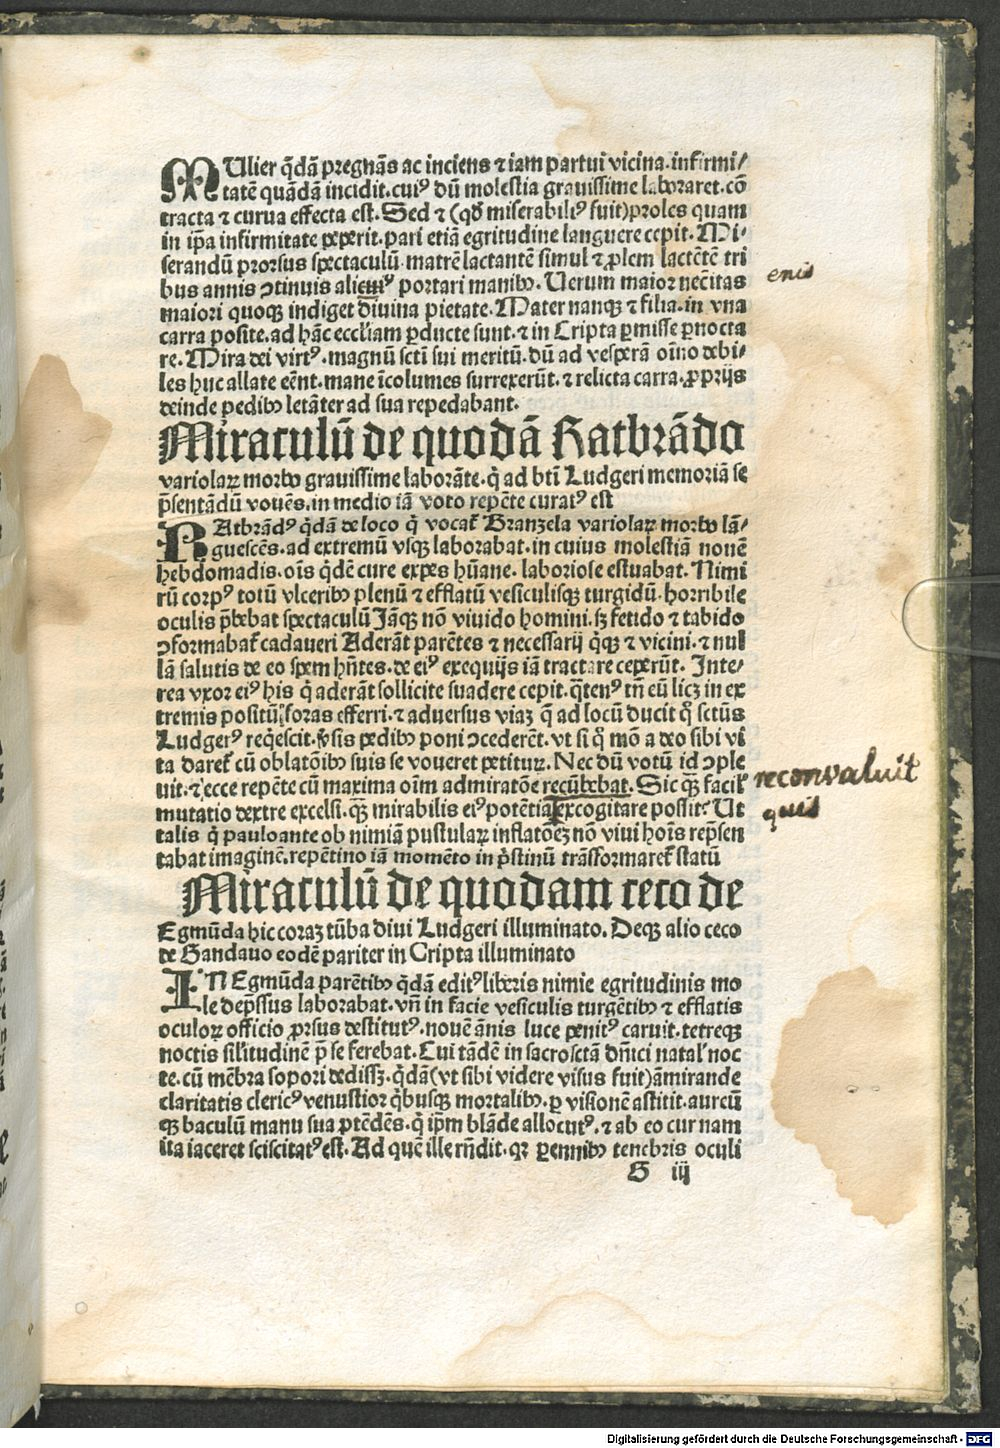 MUlier q̄dā pregnās ac inciens ⁊ iam partui vicina. infirmi/
tatē quādā incidit. cuiꝰ dū molestia grauissime laboraret. cō
tracta ⁊ curua effecta est. Sed ⁊ (qđ miserabiliꝰ fuit) proles quam
in ip̄a infirmitate peperit. pari etiā egritudine languere cepit. Mi/
serandū prorsus spectaculū. matrē lactantē simul ⁊ ꝓlem lactētē tri
bus annis ꝯtinuis alienꝰ portari manibꝰ. Uerum maior nec̄itas
maiori quoqꝫ indiget diuina pietate. Mater nanqꝫ ⁊ filia. in vna
carra posite. ad hāc eccl̄iam ꝑducte sunt. ⁊ in Cripta ꝑmisse ꝑnocta
re. Mira dei virtꝰ. magnū sctī sui meritū. dū ad vesperā oīno debi/
les huc allate eēnt. mane īcolumes surrexerūt. ⁊ relicta carra. ꝓprijs
deinde pedibꝰ letāter ad sua repedabant.
Miraculū de quodā Ratbrādo
variolaꝝ morbo grauissime laborāte. q̇ ad btī Ludgeri memoriā se
p̄sentādū vouēs. in medio iā voto repēte curatꝰ est
RAtbrādꝰ q̇dā de loco q̇ vocat̄ Branzela variolaꝝ morbo lā/
guescēs. ad extremū vsqꝫ laborabat. in cuius molestiā nouē
hebdomadis. oīs q̇dē cure expes hūane. laboriose estuabat. Nimi
rū corpꝰ totū vlceribꝰ plenū ⁊ efflatū vesiculisqꝫ turgidū. horribile
oculis p̄bebat spectaculū Jāqꝫ nō viuido homini. sꝫ fetido ⁊ tabido
ꝯformabat̄ cadaueri Aderāt parētes ⁊ necessarij q̇qꝫ ⁊ vicini. ⁊ nul
lā salutis de eo spem hn̄tes. de eiꝰ exequijs iā tractare ceperūt. Inte/
rea vxor eiꝰ his q̇ aderāt sollicite suadere cepit. q̄tenꝰ tn̄ eū licꝫ in ex
tremis positū. foras efferri. ⁊ aduersus viaꝫ q̄ ad locū ducit q̊ sctūs
Ludgerꝰ reqͥescit. sis pedibꝰ poni ꝯcederēt. vt si q̊ mō a deo sibi vi
ta daret̄ cū oblatōībꝰ suis se voueret petituꝝ. Nec dū votū id ꝯple
uit. ⁊ ecce repēte cū maxima oīm admiratōe recūbebat. Sic q̄ꝫ facil'
mutatio dextre excelsi. q̄ꝫ mirabilis eiꝰ potētia Excogitare possit. Ut
talis q̇ pauloante ob nimiā pustulaꝝ inflatōeꝫ nō viui hoīs rep̄sen
tabat imaginē. repētino iā momēto in p̄stinū trāsformaret̄ statū
Miraculū de quodam ceco de
Egmūda hic coraꝫ tūba diui Ludgeri illuminato. Deqꝫ alio ceco
de Gandauo eodē pariter in Cripta illuminato
IN Egmūda parētibꝰ q̇dā editꝰ liberis nimie egritudinis mo
le dep̄ssus laborabat. vn̄ in facie vesiculis turgētibꝰ ⁊ efflatis
oculoꝝ officio ꝓrsus destitutꝰ. nouē ānis luce penitꝰ caruit. tetreqꝫ
noctis sil'itudinē p̄ se ferebat. Cui tādē in sacrosctā dn̄ici natal' noc
te. cū mēbra sopori dedissꝫ. q̇dā (vt sibi videre visus fuit) āmirande
claritatis clericꝰ venustior q̇busqꝫ mortalibꝰ. ꝑ visionē astitit. aureū
qꝫ baculū manu sua ꝓtēdēs. q̇ ip̄m blāde allocutꝰ. ⁊ ab eo cur nam
ita iaceret sciscitatꝰ est. Ad quē ille rn̄dit. qꝛ ꝑennibꝰ tenebris oculi
G iij
enis
reconvaluit
quis
Digitalisierung gefördert durch die Deutsche Forschungsgemeinschaft - DFG